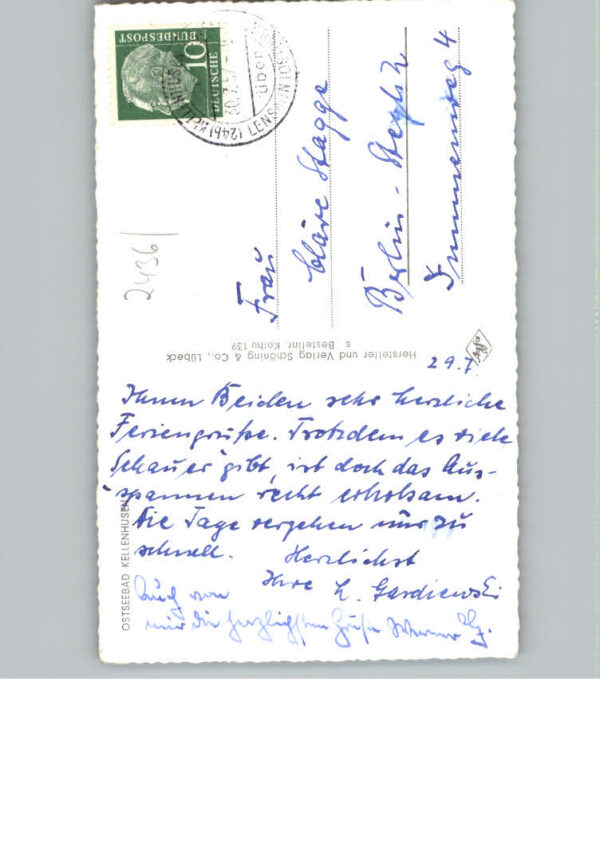 29.7.
Ihnen Beiden sehr herzliche
Feriengrüße. Trotzdem es viele
Schauer gibt, ist doch das Aus-
spannen recht erholsam.
Die Tage vergehen nur zu
schnell. Herzlichst
Ihre L. Gardiewski
Auch von
mir die herzlichsten Grüße Werner
Frau
Cläre Stagge
Berlin-Steglitz
Immenweg 4
2436
DEUTSCHE
BUNDESPOST
10
(24b) KELLENHUSEN
über LENSAHN
Hersteller und Verlag Schöning & Co., Lübeck
s Bestellnr. Kelhu 139
OSTSEEBAD KELLENHUSEN